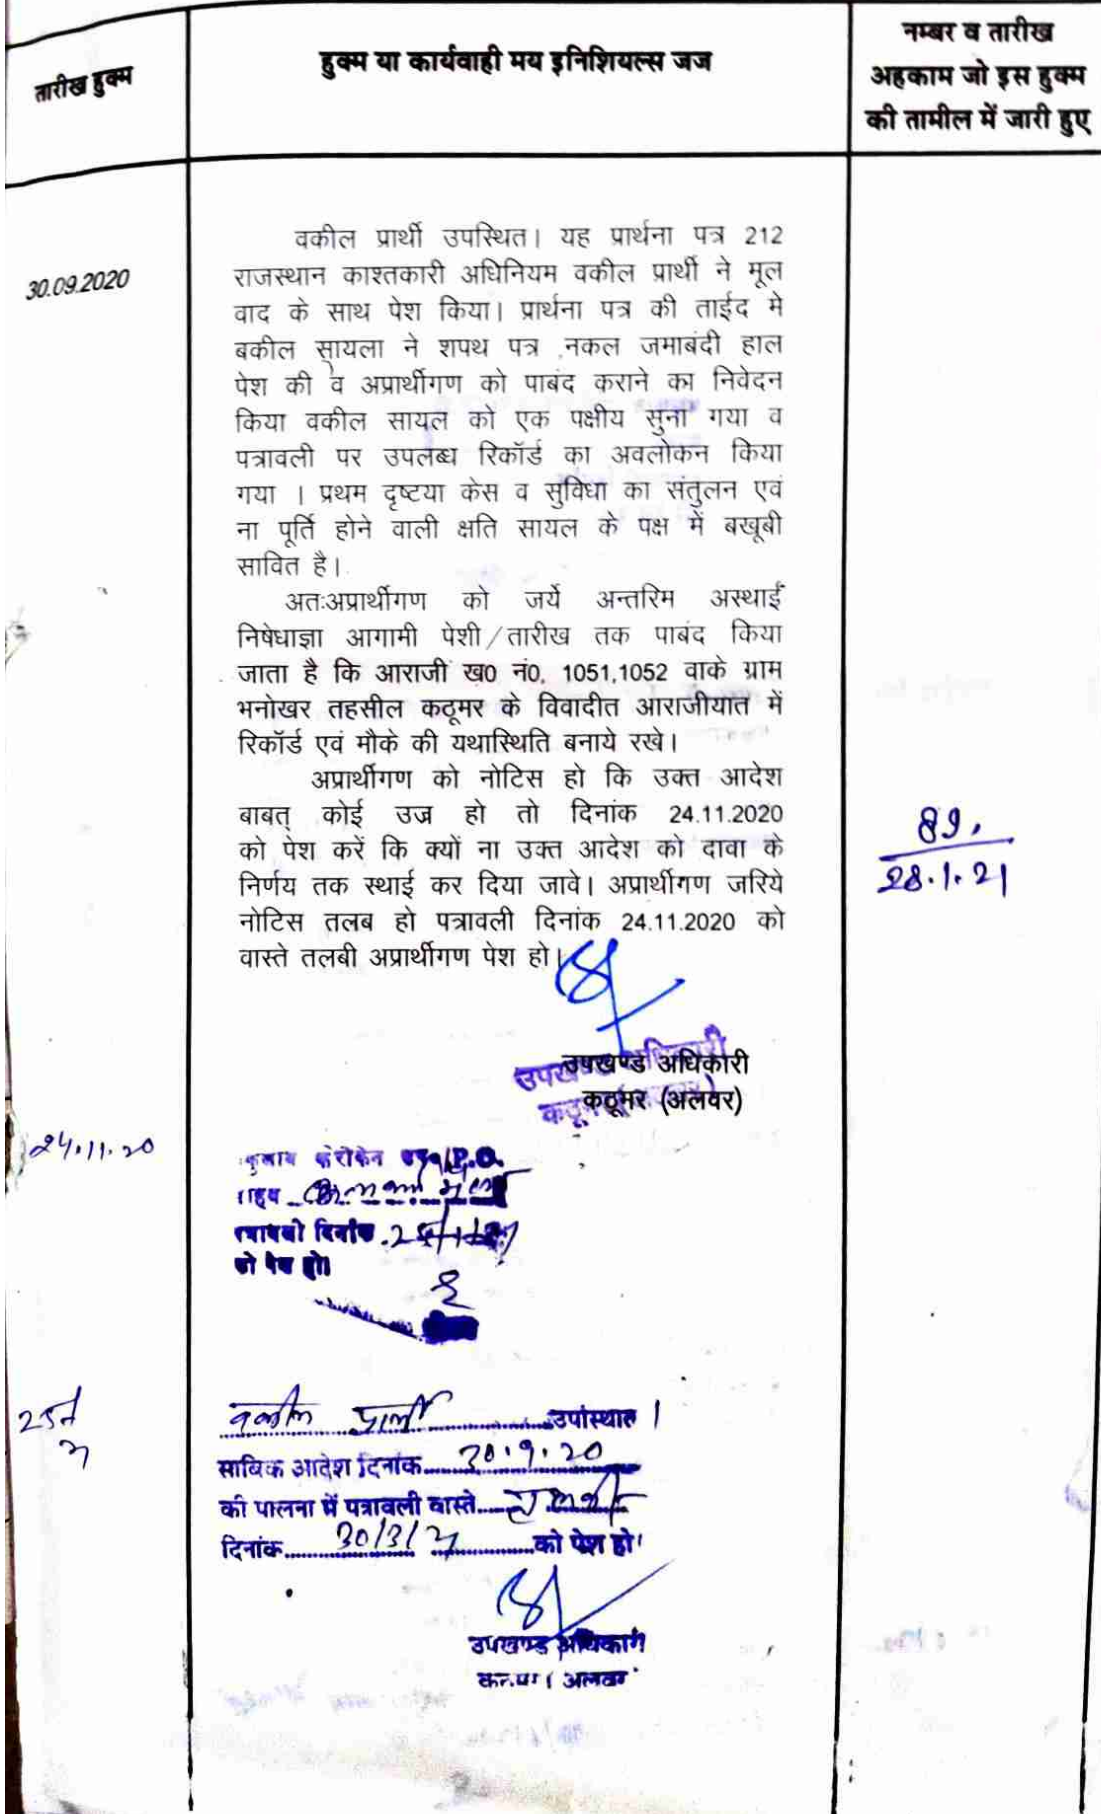 तारीख हुक्म
हुक्म या कार्यवाही मय इनिशियल्स जज
नम्बर व तारीख
अहकाम जो इस हुक्म
की तामील में जारी हुए
30.09.2020
वकील प्रार्थी उपस्थित। यह प्रार्थना पत्र 212
राजस्थान काश्तकारी अधिनियम वकील प्रार्थी ने मूल
वाद के साथ पेश किया। प्रार्थना पत्र की ताईद मे
बकील सायला ने शपथ पत्र ,नकल जमाबंदी हाल
पेश की व अप्रार्थीगण को पाबंद कराने का निवेदन
किया वकील सायल को एक पक्षीय सुना गया व
पत्रावली पर उपलब्ध रिकॉर्ड का अवलोकन किया
गया । प्रथम दृष्टया केस व सुविधा का संतुलन एवं
ना पूर्ति होने वाली क्षति सायल के पक्ष में बखूबी
सावित है।
अतःअप्रार्थीगण को जर्ये अन्तरिम अस्थाई
निषेधाज्ञा आगामी पेशी/तारीख तक पाबंद किया
जाता है कि आराजी ख0 नं0, 1051,1052 वाके ग्राम
भनोखर तहसील कठूमर के विवादीत आराजीयात में
रिकॉर्ड एवं मौके की यथास्थिति बनाये रखे।
अप्रार्थीगण को नोटिस हो कि उक्त आदेश
बाबत् कोई उज्र हो तो दिनांक 24.11.2020
को पेश करें कि क्यों ना उक्त आदेश को दावा के
निर्णय तक स्थाई कर दिया जावे। अप्रार्थीगण जरिये
नोटिस तलब हो पत्रावली दिनांक 24.11.2020 को
वास्ते तलबी अप्रार्थीगण पेश हो।
89.
28.1.21
उपखण्ड अधिकारी
कठूमर (अलवर)
24.11.20
P.O.
पत्रावली दिनांक
को पेश हो।
वकील प्रार्थी उपस्थित।
साबिक आदेश दिनांक 30.9.20
की पालना में पत्रावली वास्ते
दिनांक 30/3/21 को पेश हो।
उपखण्ड अधिकारी
अलवर